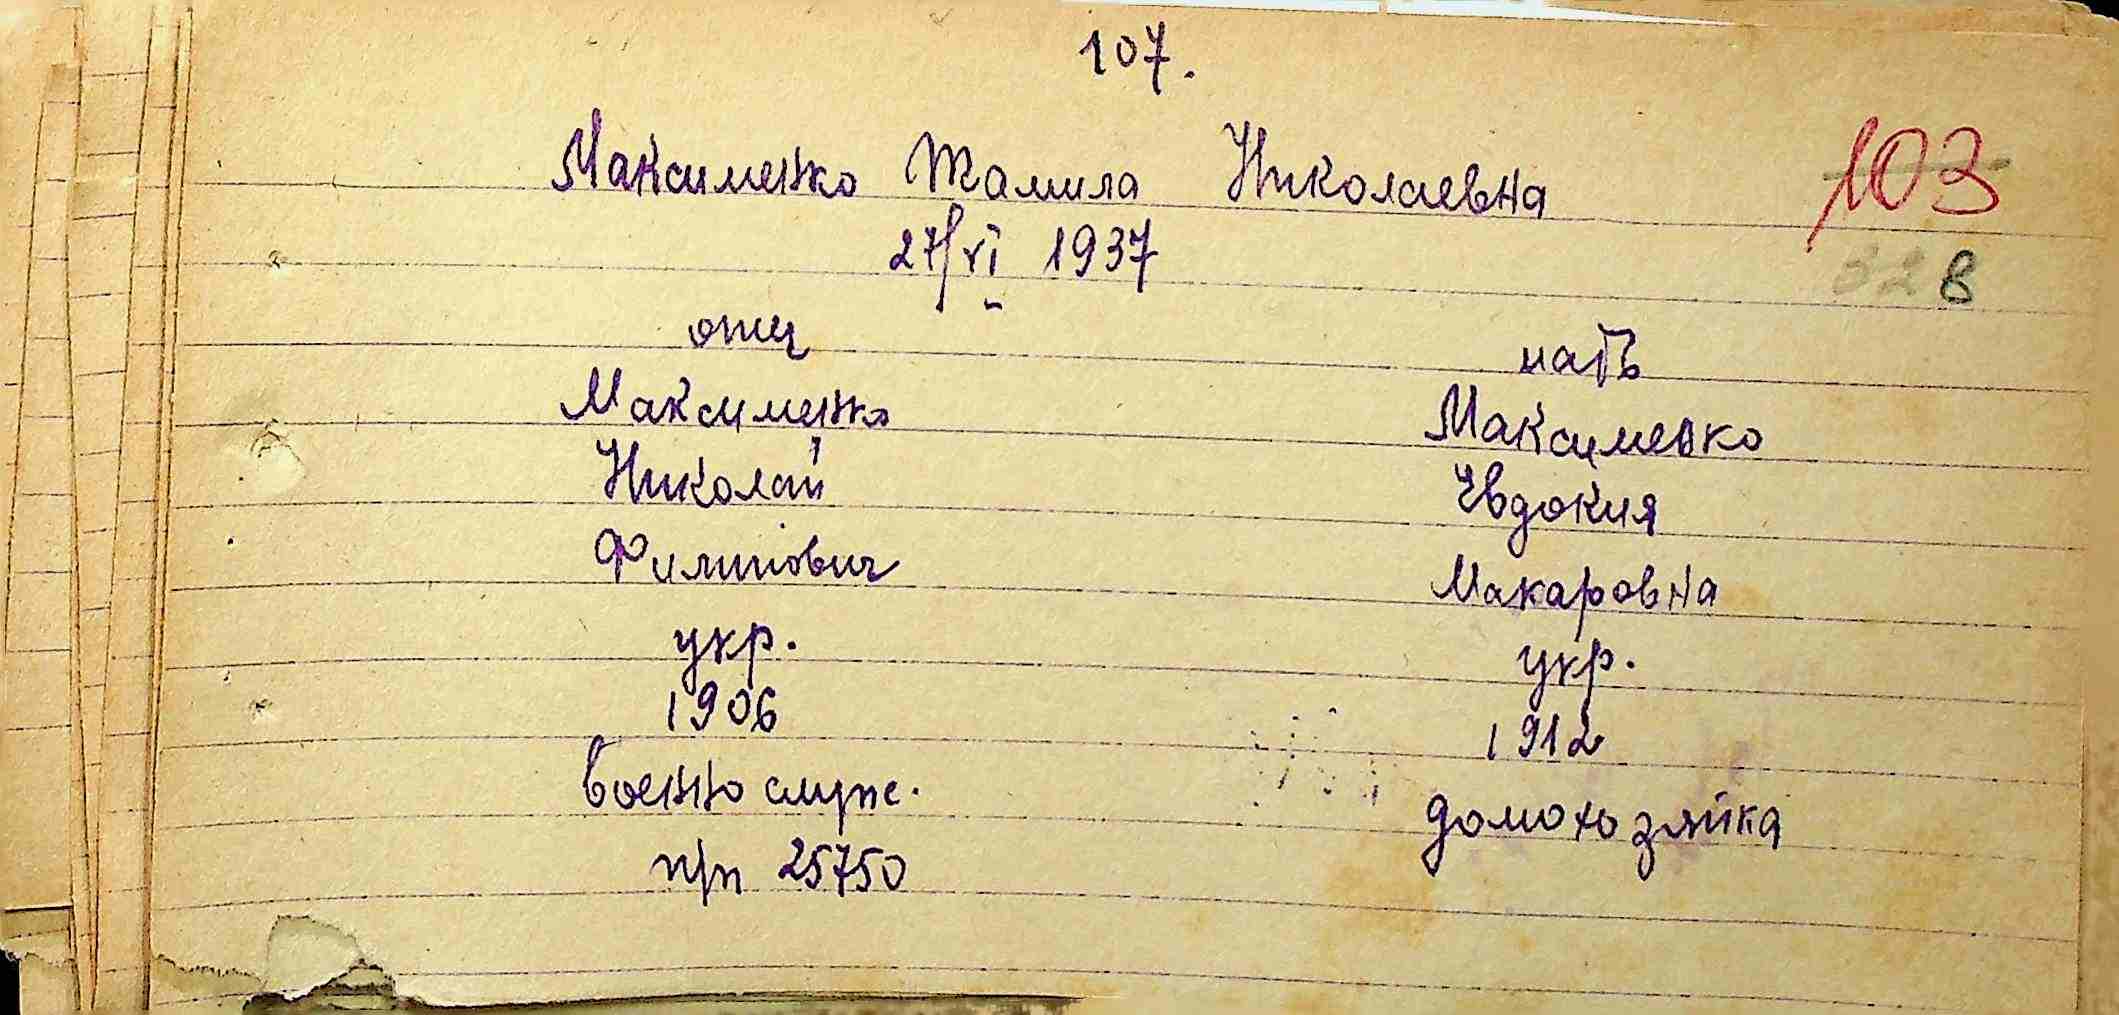 107.
Максименко Жамила Николаевна
103
27/VI 1937
в
отц мать
Максименко Максименко
Николай Евдокия
Филипович Макаровна
укр. укр.
1906 1912
военнослуж. домохозяйка
п/п 25750